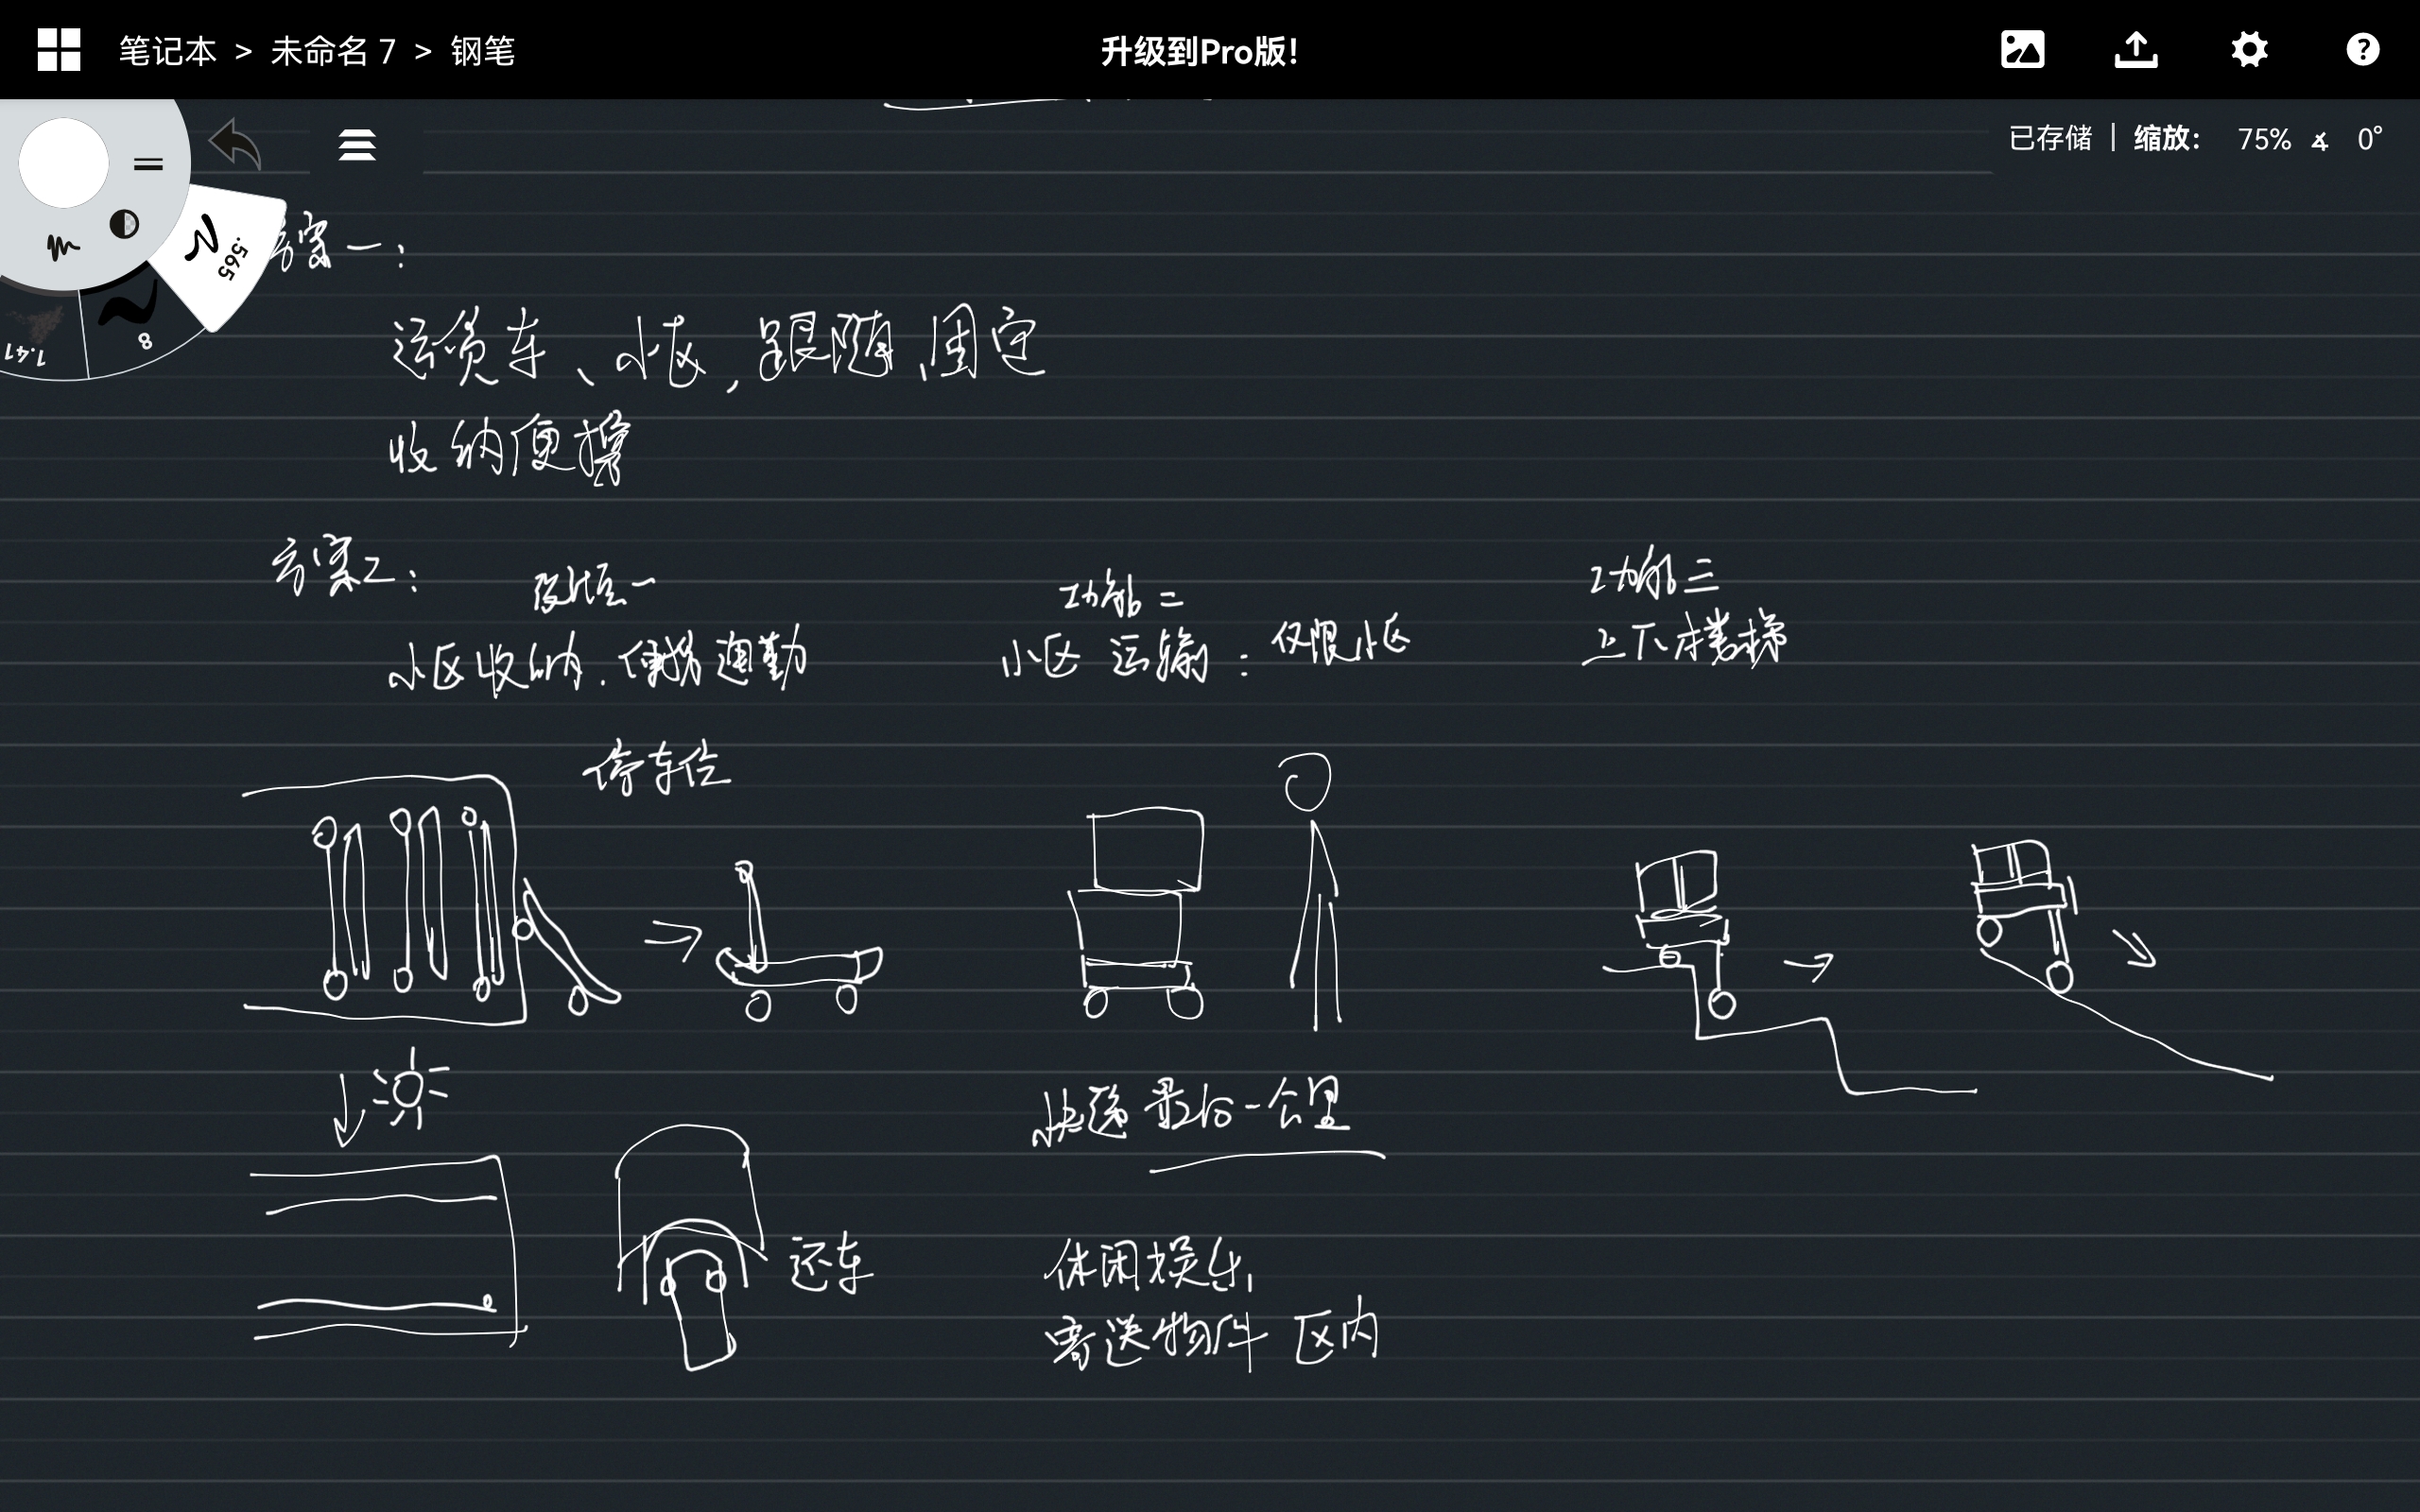 笔记本 > 未命名 7 > 钢笔
升级到Pro版！
已存储 | 缩放： 75% ∡ 0°
.565
8
1.41
方案一：
车、小区，跟随、固定
收纳便携
方案2：
功能二
功能三
小区收纳．便携通勤
小区 运输：仅限小区
上下楼梯
停车位
快递最后一公里
还车
休闲娱乐，
寄送物件 区内